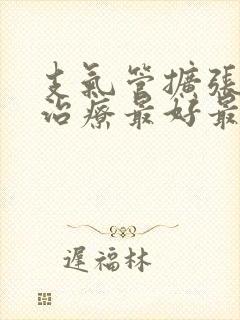 支氣管擴張
治療最好最
遲福林